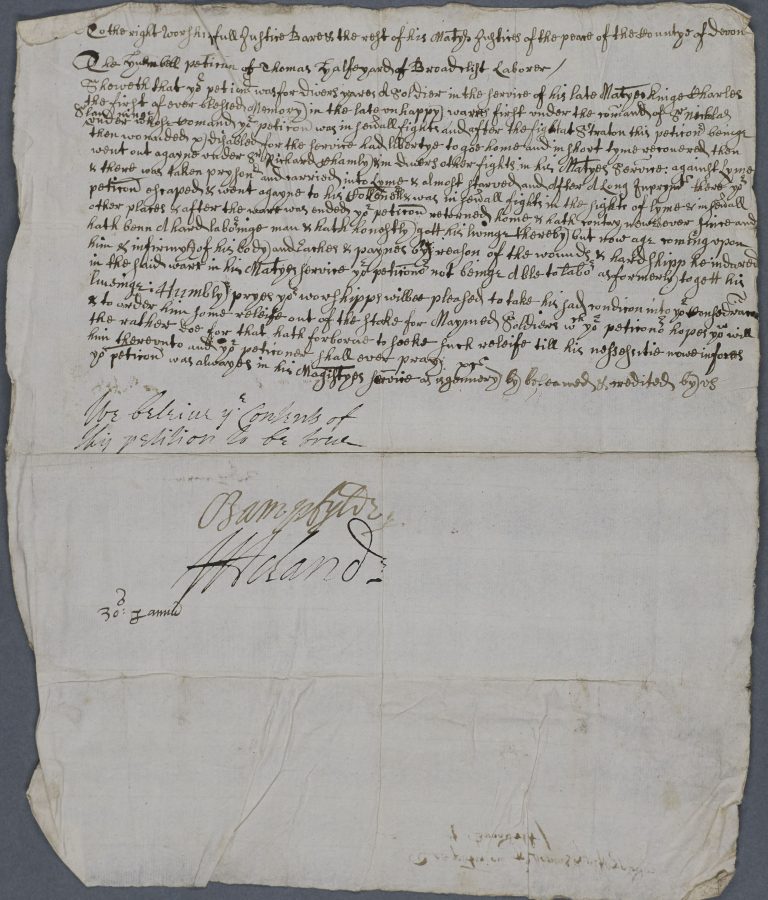 To the right worshipfull Justice Bare & the rest of his Matyes Justices of the peace of the Countye of Devon
The Humbell peticon of Thomas Halfeyard of Broadclist Laborer
Sheweth that yor peticonr was for divers yares a Soldier in the service of his late Matyes Kinge Charles
the first of ever blessed Memory) in the late onhappy) warrs first under the comand of Sr Nicklas
Slaninge
under whose Comand yr peticon was in severall fights and after the fight at Straton this peticonr beinge
then wounded & disabled for the service had libertye to goe home and in short tyme recovered then
went out agayne under Sr Richard & in divers other fights in his Matyes Service: against Lyme
& there was taken prysonr and carried into Lyme & almost starved and after a Long Imprysmt there yr
peticon escaped & went agayne to his & was in severall fights in the sighte of Lyme & in severall
other places & after the warre was ended yr peticon returned home & hath contynued there ever since and
hath benn a hard laboringe man & hath honestly) gott his livinge thereby) but now age cominge upon
him & infirmyty of his body) and aches & paynes by reason of the wounds & hardshipp he indured
in the said warrs in his Matyes service yr peticonr not beinge able to labor as formerly to gett his
livinge: Humbly pryes yor worshippes willbee pleased to take his sad condicon into yor consideracon
& to order him some releife out of the stoke for Maymed Soldiers wch yor peticonr hopes you will
the rather doe for that hath forborne to seeke such releife till his nessessitie nowe inforces
him thereunto and yor peticoner shall ever pray) &c
yor peticon was alwayes in his Magistyes service as is by beleaved & credited by us
We beleive ye Contents of
this petition to be true
Bampfylde
Acland
30s: p annu